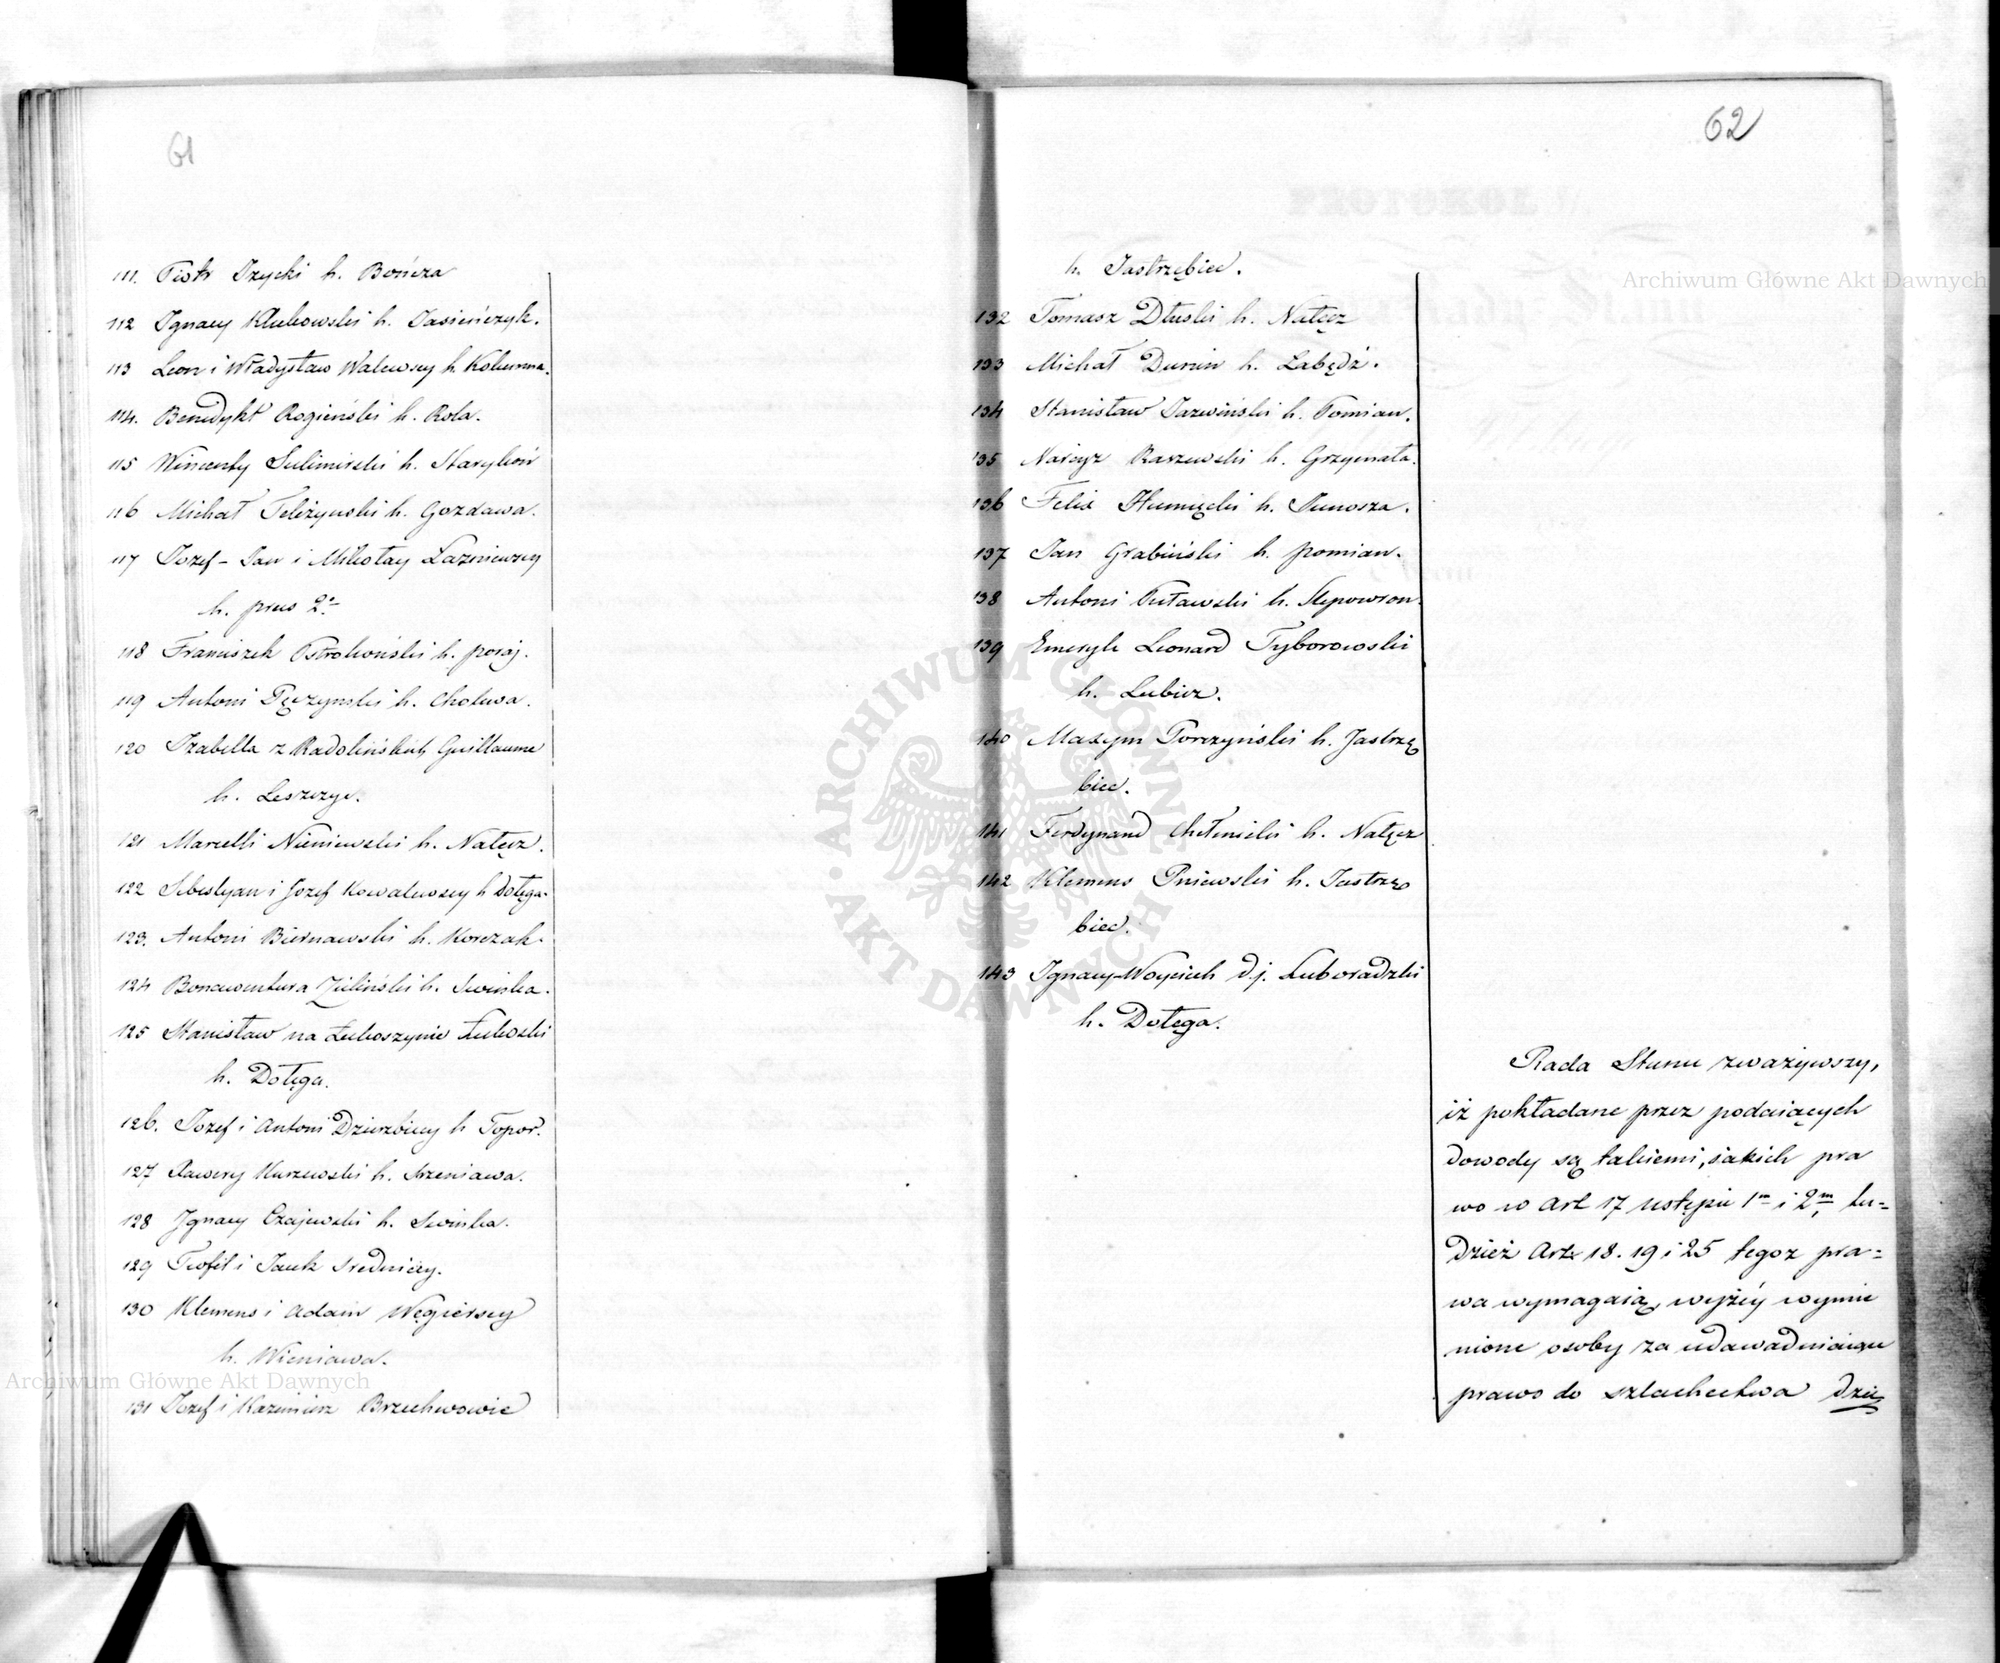 61
111. Piotr Izycki h. Bończa
112 Ignacy Klukowski h. Jasieńczyk.
113 Leon i Władysław Walewscy h. Kolumna.
114. Benedykt Rogieński h. Rola.
115 Wincenty Sulimirski h. Starykoń
116 Michał Feliżynski h. Gozdawa.
117 Jozef – Jan i Mikołay Łazniewscy
h. prus 2º
118 Franciszek Ostrokoński h. poraj.
119 Antoni Pęczynski h. Cholewa.
120 Izabella z Radolińskich Guillaume
h. Leszczyc.
121 Marcelli Nieniewski h. Nałęcz.
122 Sebestyan i Jozef Kowalewscy h Dołęga.
123. Antoni Biernawski h. Korczak.
124 Bonawentura Zieliński h. Swinka.
125 Stanisław na Łukoszynie Łukoski
h. Dołęga.
126. Jozef i Antoni Dzierzbiccy h Topor.
127 Xawery Kurzewski h. Srzeniawa.
128 Ignacy Czajewski h. Swinka.
129 Teofil i Jacek Sredniccy.
130 Klemens i Adam Węgierscy
h. Wieniawa.
131 Jozef i Kazimierz Brzechwowie
62
h. Jastrzębiec.
132 Tomasz Dłuski h. Nałęcz
133 Michał Dunin h. Łabędź.
134 Stanisław Jazwiński h. Pomian.
135 Narcyz Raszewski h. Grzymała.
136 Felix Humięcki h. Junosza.
137 Jan Grabiński h. pomian.
138 Antoni Puławski h. Slepowron.
139 Emeryk Leonard Tyborowski
h. Lubicz.
140 Maxym Porczyński h. Jastrzę
biec.
141 Ferdynand Chełmicki h. Nałęcz
142 Klemens Pniewski h. Jastrzę
biec.
143 Ignacy-Woyciech d.j. Luboradzki
h. Dołęga.
Rada Stanu zważywszy,
iż pokładane przez podaiących
dowody są takiemi, iakich pra
wo w Art 17 ustępie 1m i 2m, tu-
dzież Art 18. 19 i 25 tegoz pra=
wa wymagaią, wyżéy wymie
nione osoby za udawadniaiące
prawo do szlachectwa dzie
Archiwum Główne Akt Dawnych
Archiwum Główne Akt Dawnych
ARCHIWUM GŁÓWNE AKT DAWNYCH
PROTOKOŁ